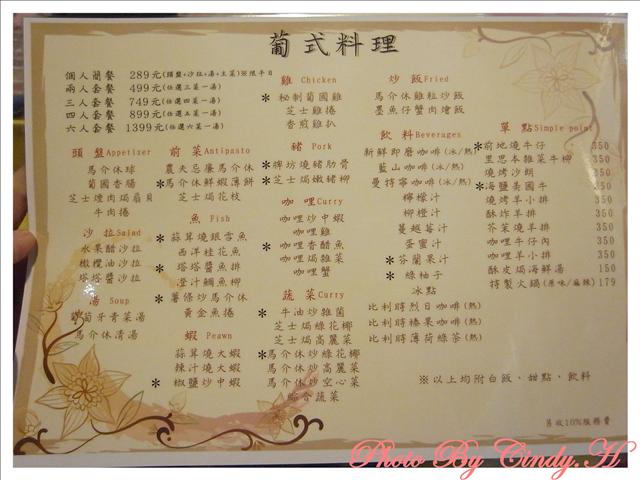 葡式料理
個人簡餐 289元(頭盤+沙拉+湯+主菜)※限平日
兩人套餐 499元(任選三菜一湯)
三人套餐 749元(任選四菜一湯)
四人套餐 899元(任選五菜一湯)
六人套餐 1399元(任選六菜一湯)
頭盤Appetizer
馬介休球
葡國香腸
芝士煙肉焗扇貝
牛肉捲
沙拉Salad
水果醋沙拉
橄欖油沙拉
塔塔醬沙拉
湯 Soup
葡萄牙青菜湯
馬介休清湯
前菜Antipasto
農夫忌廉馬介休
*馬介休鮮蝦薄餅
芝士焗花枝
魚 Fish
*蒜茸燒銀雪魚
西洋桂花魚
*塔塔醬魚排
澄汁鯛魚柳
*薯條炒馬介休
黃金魚捲
蝦 Peawn
蒜茸燒大蝦
辣汁燒大蝦
*椒鹽炒中蝦
雞 Chicken
*秘制葡國雞
芝士雞捲
香煎雞扒
豬 Pork
*牌坊燒豬肋骨
*芝士焗嫩豬柳
咖哩Curry
咖哩炒中蝦
咖哩雞
*咖哩香醋魚
咖哩焗雜菜
咖哩蟹
蔬菜Curry
*牛油炒雜菌
芝士焗綠花椰
芝士焗高麗菜
*馬介休炒綠花椰
馬介休炒高麗菜
馬介休炒空心菜
綜合蔬菜
炒飯Fried
馬介休雞粒炒飯
墨魚仔蟹肉燴飯
飲料Beverages
新鮮即磨咖啡(冰/熱)
藍山咖啡(冰/熱)
曼特寧咖啡(冰/熱)
檸檬汁
柳橙汁
蔓越莓汁
蛋蜜汁
*芬蘭果汁
*綠柚子
冰點
比利時烈日咖啡(熱)
比利時榛果咖啡(熱)
比利時薄荷綠茶(熱)
單點Simple point
*前地燒牛仔 350
里思本雜菜牛柳 350
燒烤沙朗 350
*海鹽美國牛 350
燒烤羊小排 350
酥炸羊排 350
芥茉燒羊排 350
咖哩牛仔肉 350
咖哩羊小排 350
酥皮焗海鮮湯 150
特製火鍋(原味/麻辣)179
※以上均附白飯、甜點、飲料
另收10%服務費
Photo By Cindy.H